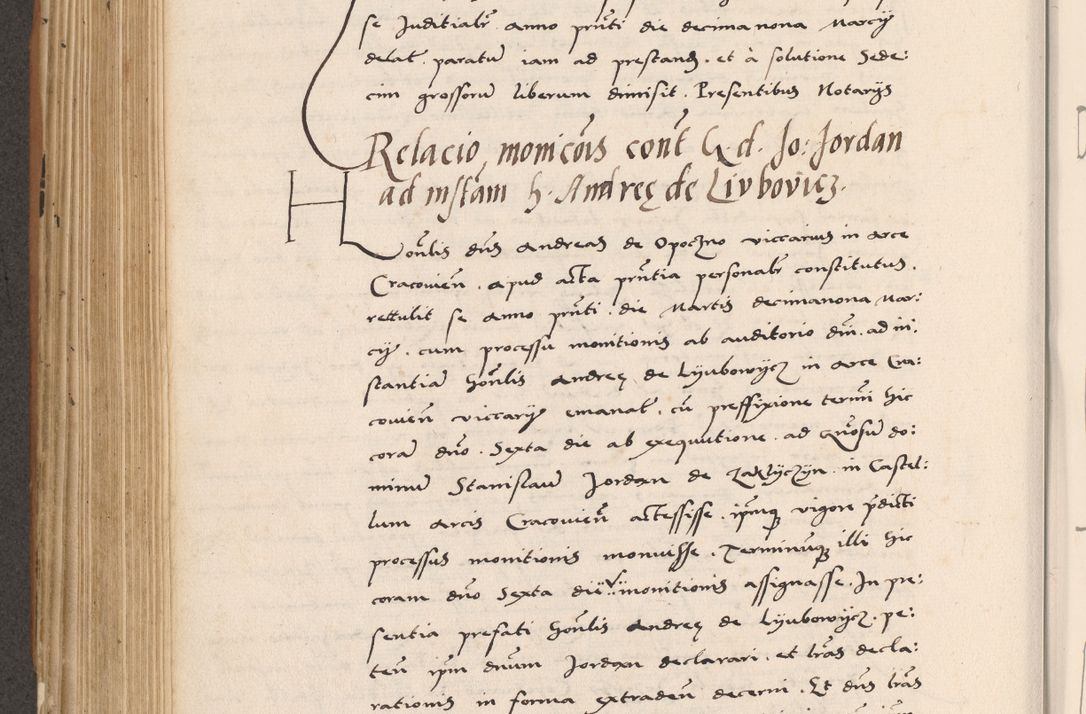 se Juditialr̃ anno pñti die decimanona Marcÿ
delat̃. paratũ iam ad prestand̃. et à solutione Sede:
cim grossorũ liberum dimisit. Presentibus Notarÿs
Relacio monicõis cont̃ G. d. Jo: Jordan
ad instãm h. Andreę de Livbovicz.
Honłis dñs Andreas de Opoczno viccarius in arce
Cracovieñ. apud acta pñtia personalr̃ constitutus.
rettulit se anno pñti. die Martis decimanona Mar:
cÿ. cum processu monitionis ab auditorio dñi. ad in:
stantiã honłis Andreę de Lyubowÿcz in arce Cra:
covieñ viccarÿ emanat̃. cũ preffixione termĩ hic
corã dño. Sexta die ab exequutione. ad gñosũ do:
minũ Stanislaũ Jordan de Zaklÿczÿn in Castel:
lum arcis Cracovieñ accessisse. ipmq̃ vigore p̃dicti
processus monitionis monuisse. Terminũq̃ illi hic
coram dño Sexta die monitionis assignasse. In pre:
sentia prefati honłis Andreę de Lyubowÿcz. pe:
teñ ipm dnum Jordan declarari. et lr̃as decla:
rationis in forma extradeñ decerni. Et dñs lr̃as